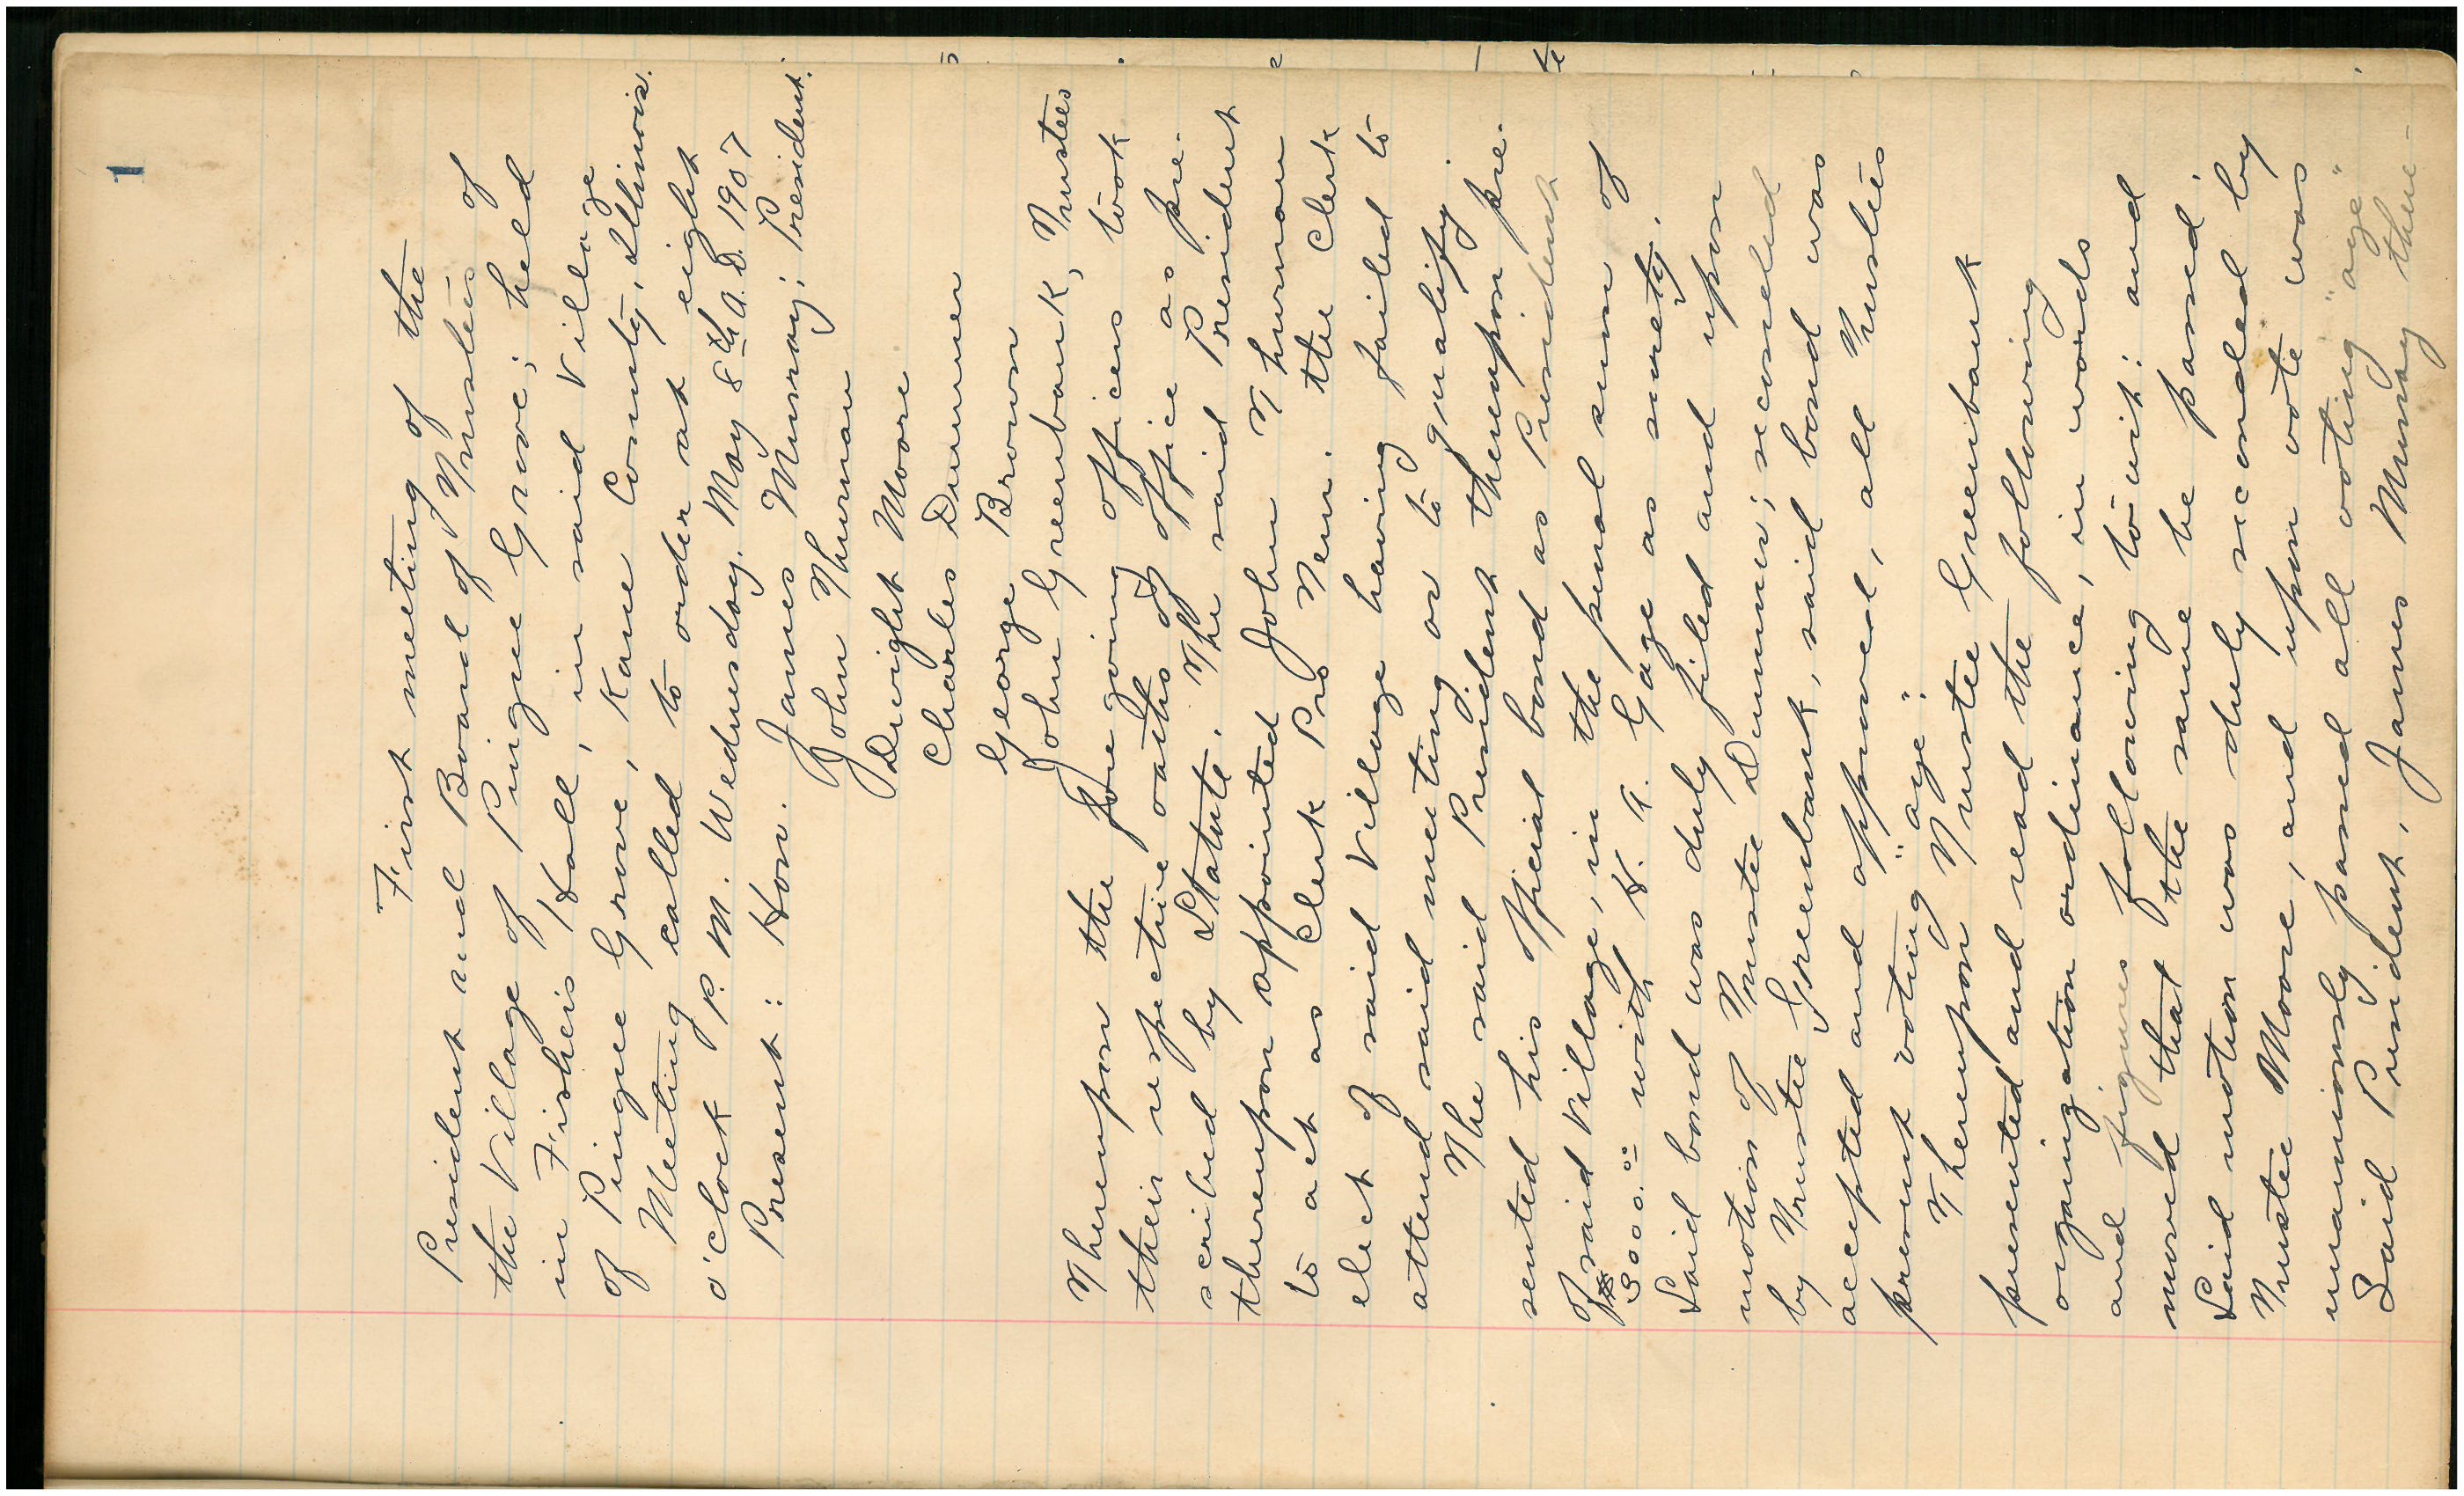 1
First meeting of the
President and Board of Trustees of
the Village of Pingree Grove; held
in Fishers Hall, in said Village
of Pingree Grove, Kane County, Illinois.
Meeting called to order at eight
o'clock P. M. Wednesday, May 8th A. D. 1907
Present: Hon. James Murray; President.
John Thurman
Dwight Moore
Charles Dummer
George Brown
John Greenbank, Trustees
Thereupon the foregoing officers took
their respective oaths of office as pre-
scribed by Statute. The said President
thereupon appointed John Thurman
to act as Clerk Pro Tem. the Clerk
elect of said Village having failed to
attend said meeting or to qualify.
The said President thereupon pre-
sented his official bond as President
of said Village, in the penal sum of
$3000.00 with H. A. Gage as surety.
Said bond was duly filed and upon
motion of Trustee Dummer; seconded
by Trustee Greenbank, said bond was
accepted and approved, all Trustees
present voting "aye".
Thereupon Trustee Greenbank
presented and read the following
organization ordinance, in words
and figures following to-wit: and
moved that the same be passed.
Said motion was duly seconded by
Trustee Moore, and upon vote was
unanimously passed all voting "aye"
Said President, James Murray there-